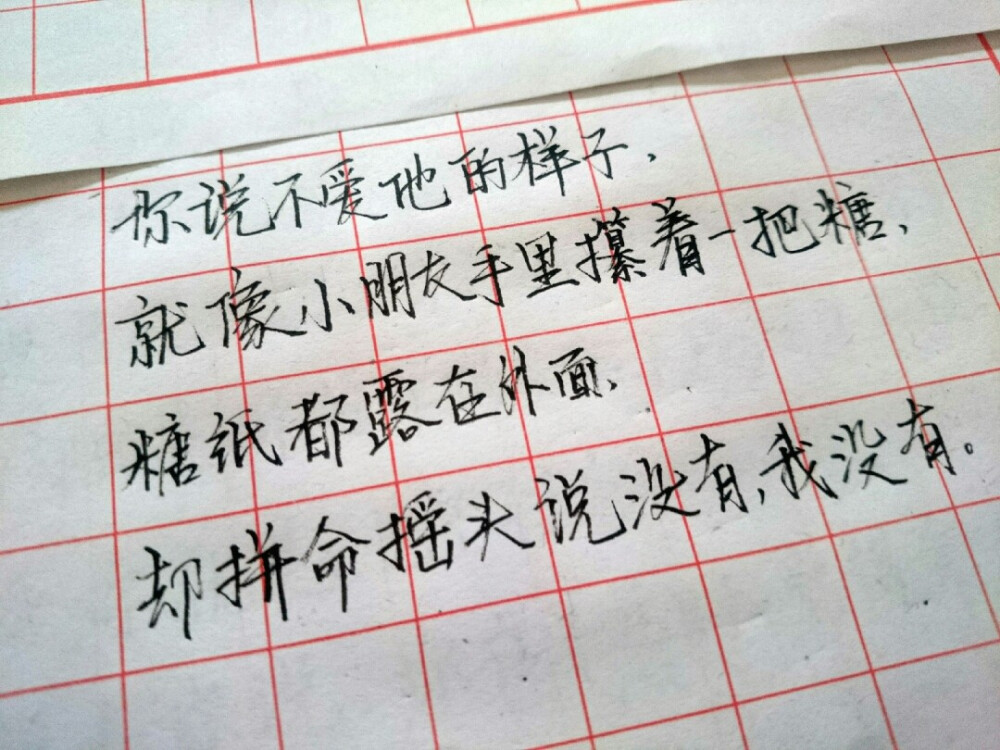 你说不爱他的样子,
就像小朋友手里攥着一把糖,
糖纸都露在外面,
却拼命摇头说没有,我没有。